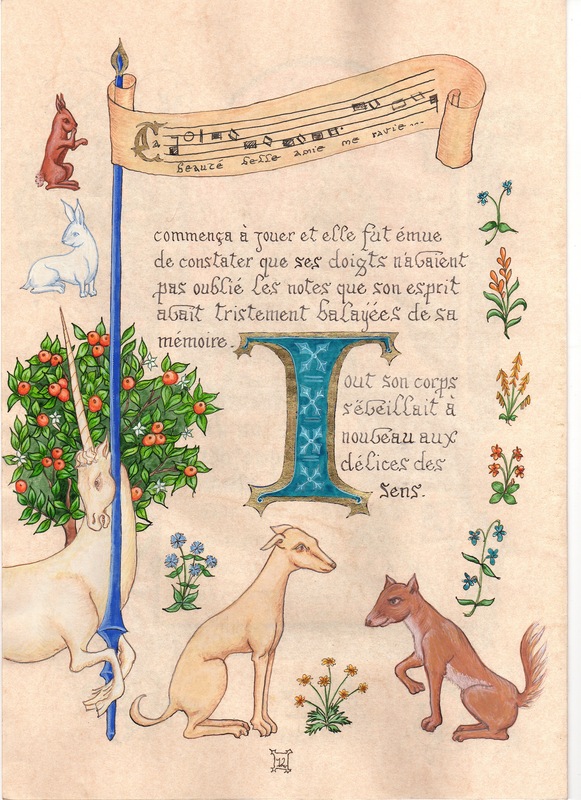 Ta beauté belle amie me ravie...
commença à jouer et elle fut émue
de constater que ses doigts n'avaient
pas oublié les notes que son esprit
avait tristement balayées de sa
mémoire.
Tout son corps
s'éveillait à
nouveau aux
délices des
sens.
12